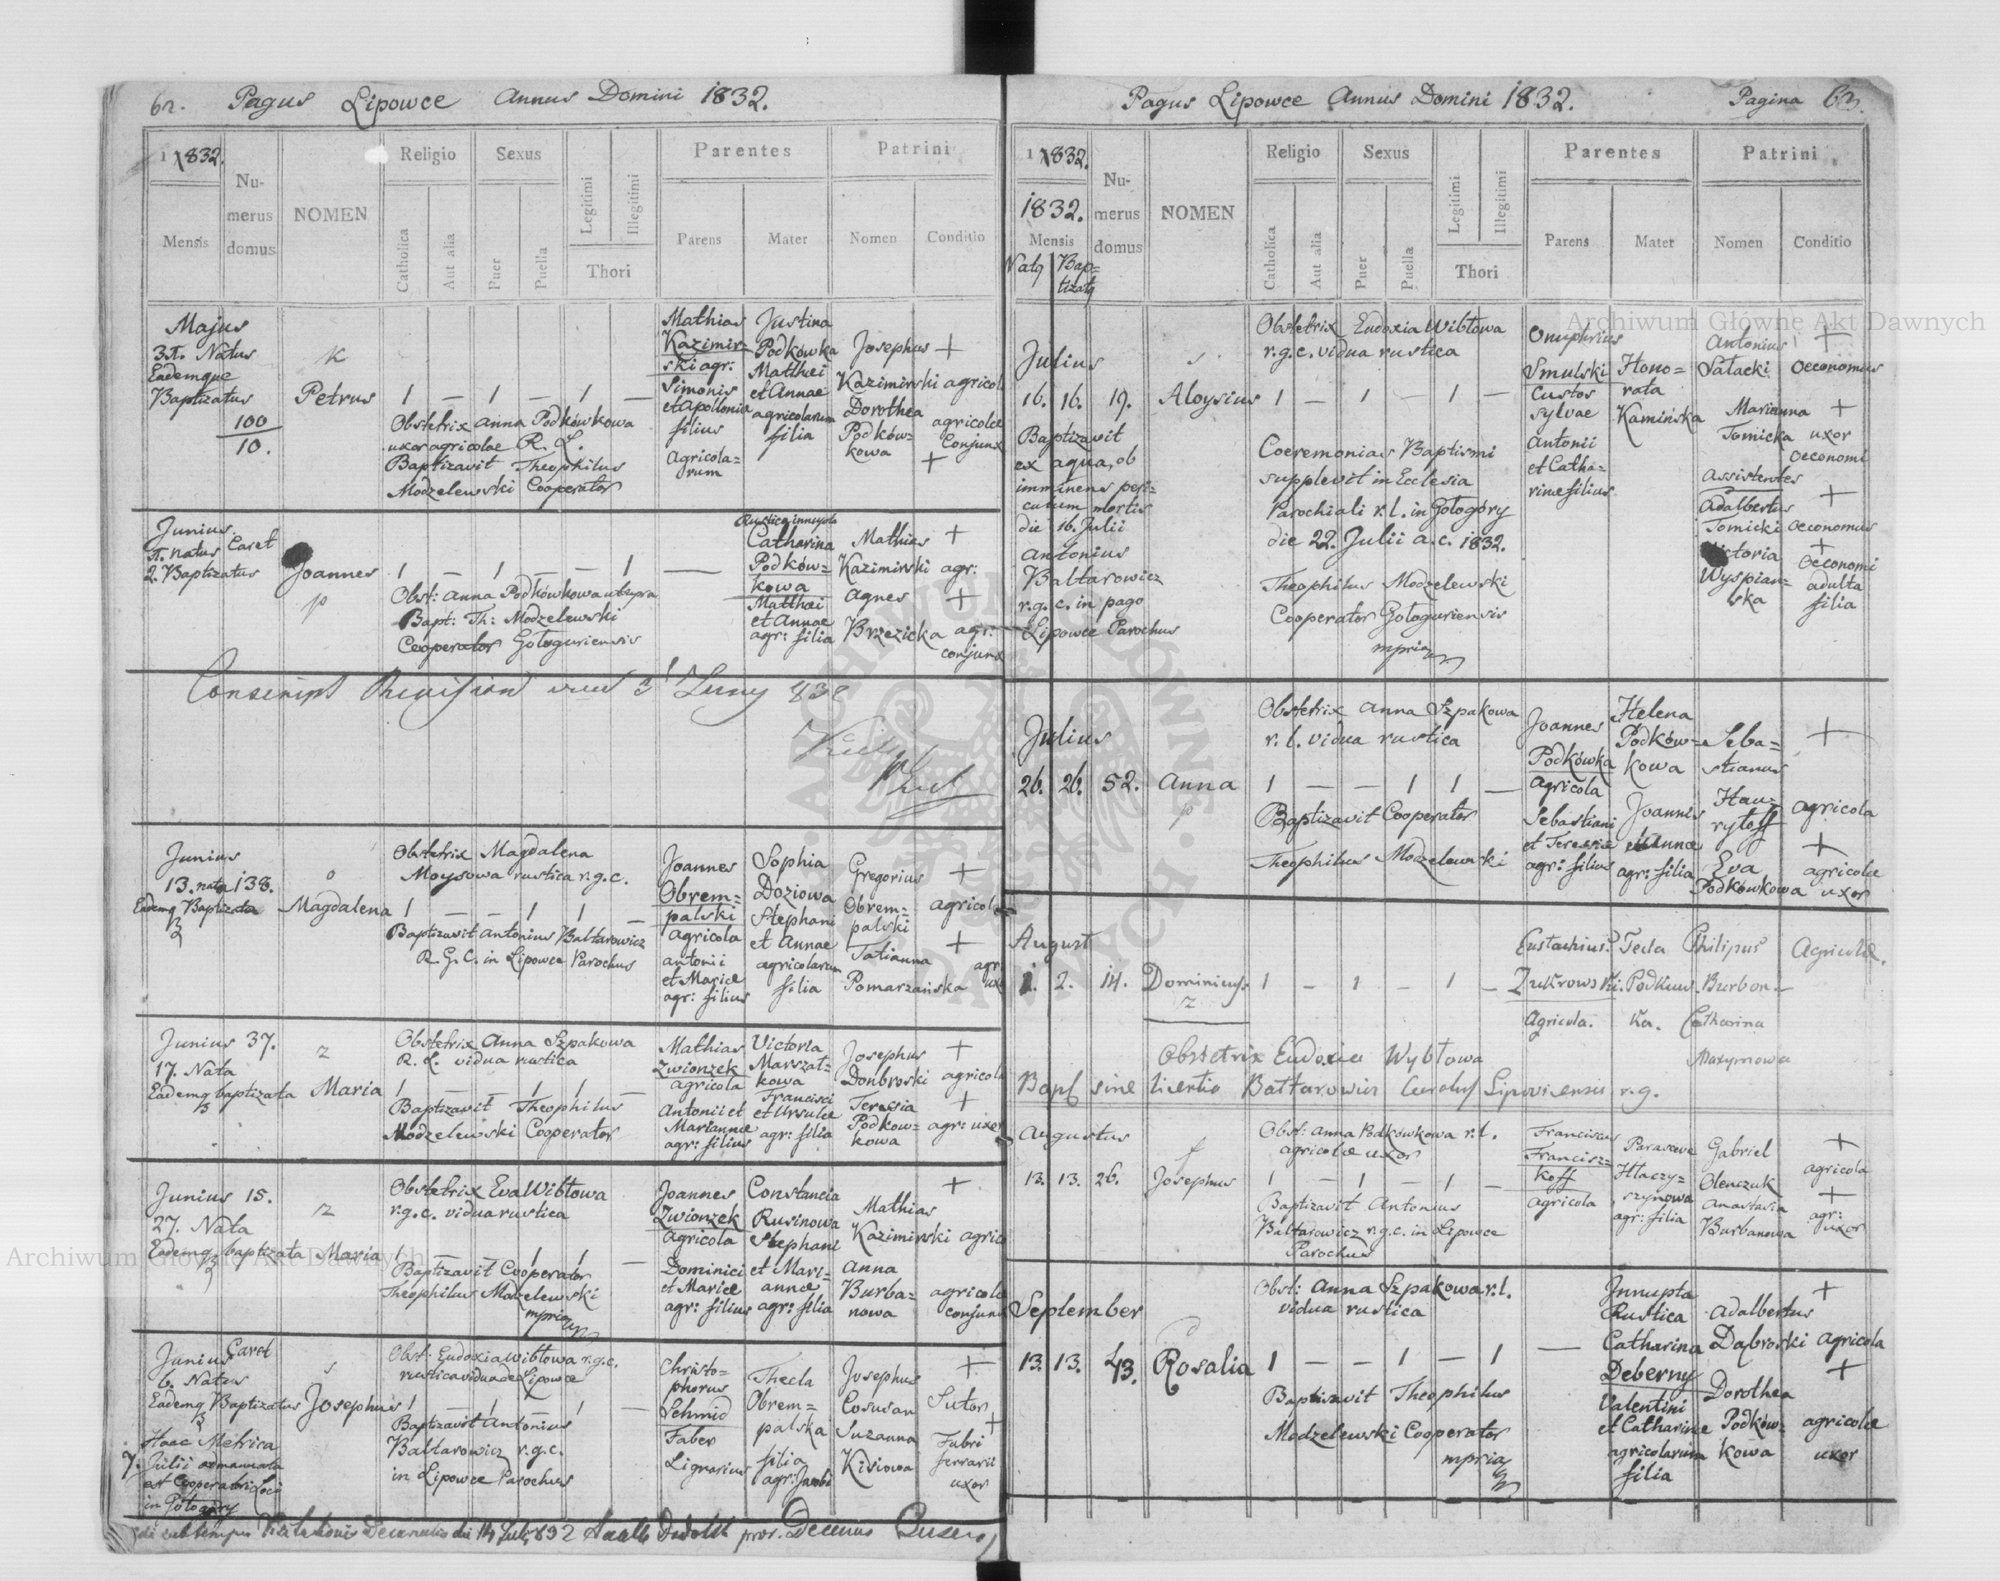 62. Pagus Lipowce Annus Domini 1832.
1 1832.
Mensis
Numerus domus
NOMEN
Religio
Catholica
Aut alia
Sexus
Puer
Puella
Legitimi
Illegitimi
Thori
Parentes
Parens
Mater
Patrini
Nomen
Conditio
Majus
31. Natus
Eademque
Baptizatus
100
10.
K
Petrus
1 — 1 — 1 —
Obstetrix Anna Podkówkowa
uxor agricolae R. L.
Baptizavit Theophilus
Modzelewski Cooperator
Mathias
Kazimir=
ski agr:
Simonis
et Apolloniae
filius
Agricola=
rum
Justina
Podkówka
Matthei
et Annae
agricolarum
filia
Josephus +
Kazimirski agricola
Dorothea agricolae
Podków= Conjunx
kowa +
Junius
1. Natus Caret
2. Baptizatus
Joannes
p
1 — 1 — — 1
Obst: Anna Podkówkowa ut supra
Bapt: Th: Modzelewski
Cooperator Gołoguriensis
—
Rustica innupta
Catharina
Podków=
kowa
Matthei
et Annae
agr: filia
Mathias +
Kazimirski agr:
Agnes +
Brzezicka agr:
conjunx
Junius
13. nata 138.
Eademq Baptizata
o
Magdalena
Obstetrix Magdalena
Moysowa rustica r.g.c.
1 — — 1 1 —
Baptizavit Antonius Baltarowicz
R. G. C. in Lipowce Parochus
Joannes
Obrem=
palski
agricola
Antonii
et Mariae
agr: filius
Sophia
Doziowa
Stephani
et Annae
agricolarum
filia
Gregorius +
Obrem= agricola
palski
Tatianna +
Pomarzańska agr
uxo
Junius 37.
17. Nata
Eademq baptizata
z
Maria
Obstetrix Anna Szpakowa
R. L. vidua rustica
1 — — 1 1 —
Baptizavit Theophilus
Modzelewski Cooperator
Mathias
Zwionzek
agricola
Antonii et
Mariannae
agr: filius
Victoria
Marszał=
kowa
Francisci
et Ursulae
agr: filia
Josephus +
Donbroski agricola
Teresia +
Podkow= agr: uxor
kowa
Junius 15.
27. Nata
Eademq baptizata
z
Maria
Obstetrix Eva Wibtowa
r.g.c. vidua rustica
1 — — 1 1 —
Baptizavit Cooperator
Theophilus Modzelewski
mpria
Joannes
Zwionzek
agricola
Dominici
et Mariae
agr: filius
Constancia
Rusinowa
Stephani
et Mari=
annae
agr: filia
+
Mathias
Kazimirski agrico
Anna
Burba= agricolae
nowa conjunx
Junius Caret
6. Natus
Eademq Baptizatus
s
Josephus
Obst: Eudoxia Wibtowa r.g.c.
rustica vidua de Lipowce
1 — 1 — 1 —
Baptizavit Antonius
Baltarowicz r.g.c.
in Lipowce Parochus
Haec Metrica
7. Julii
est Cooperatori Loci
in Gołogóry
Christo=
phorus
Schmid
Faber
Lignarius
Thecla
Obrem=
palska
filia
agr: Jacobi
Josephus +
Cosusan Sutor
Suzanna +
Kisiowa Fabri
ferrarii
uxor
Pagus Lipowce Annus Domini 1832. Pagina 63.
1 1832.
1832.
Mensis
Natq Bap=
tizatq
Numerus domus
NOMEN
Religio
Catholica
Aut alia
Sexus
Puer
Puella
Legitimi
Illegitimi
Thori
Parentes
Parens
Mater
Patrini
Nomen
Conditio
Julius
16. 16. 19.
s.
Aloysius
Baptizavit
ex aqua, ob
imminens peri=
culum mortis
die 16. Julii
Antonius
Baltarowicz
r.g.c. in pago
Lipowce Parochus
Obstetrix Eudoxia Wibtowa
r.g.c. vidua rustica
1 — 1 — 1 —
Coeremonias Baptismi
supplevit in Ecclesia
Parochiali r.l. in Gołogóry
die 22. Julii a.c. 1832.
Theophilus Modzelewski
Cooperator Gołoguriensis
mpria
Onuphrius
Smulski
Custos
Sylvae
Antonii
et Catha=
rinae filius
Hono=
rata
Kamińska
Antonius +
Sałacki Oeconomus
Marianna +
Tomicka uxor
Oeconomi
Assistentes
Adalbertus +
Tomicki Oeconomus
Victoria +
Wyspian= Oeconomi
ska adulta
filia
Julius
26. 26. 52.
Anna
p
Obstetrix Anna Szpakowa
r. l. vidua rustica
1 — — 1 1 —
Baptizavit Cooperator
Theophilus Modzelewski
Joannes
Podkówka
agricola
Sebastiani
et Teresiae
agr: filius
Helena
Podków=
kowa
Joannis
et Annae
agr: filia
Seba= +
stianus
Hau= agricola
rytoff
+
Eva agricolae
Podkówkowa uxor
August
1. 2. 14.
Dominicus.
z
1 — 1 — 1 —
Eustachius
Zukrowski.
Agricola.
Tecla
Podkuw
ka.
Philipus Agricolae.
Burban
Catharina
Maxymowa
Obstetrix Eudoxia Wybtowa
Bapt sine licentia Baltarowicz r.g.
Augustus
13. 13. 26.
f
Josephus
Obst: Anna Podkówkowa r.l.
agricolae uxor
1 — 1 — 1 —
Baptizavit Antonius
Baltarowicz r.g.c. in Lipowce
Parochus
Franciscus
Francisz=
koff
agricola
Parasceve
Hlaczy=
szynowa
agr: filia
Gabriel +
Olenczuk agricola
Anastasia +
Burbanowa agr:
uxor
September
13. 13. 43.
Rosalia
Obst: Anna Szpakowa r.l.
vidua rustica
1 — — 1 — 1
Baptizavit Theophilus
Modzelewski Cooperator
mpria
—
Innupta
Rustica
Catharina
Deberny
Valentini
et Catharinae
agricolarum
filia
Adalbertus +
Dąbroski agricola
Dorothea +
Podków= agricolae
kowa uxor
Archiwum Główne Akt Dawnych
Archiwum Główne Akt Dawnych
ARCHIWUM GŁÓWNE AKT DAWNYCH